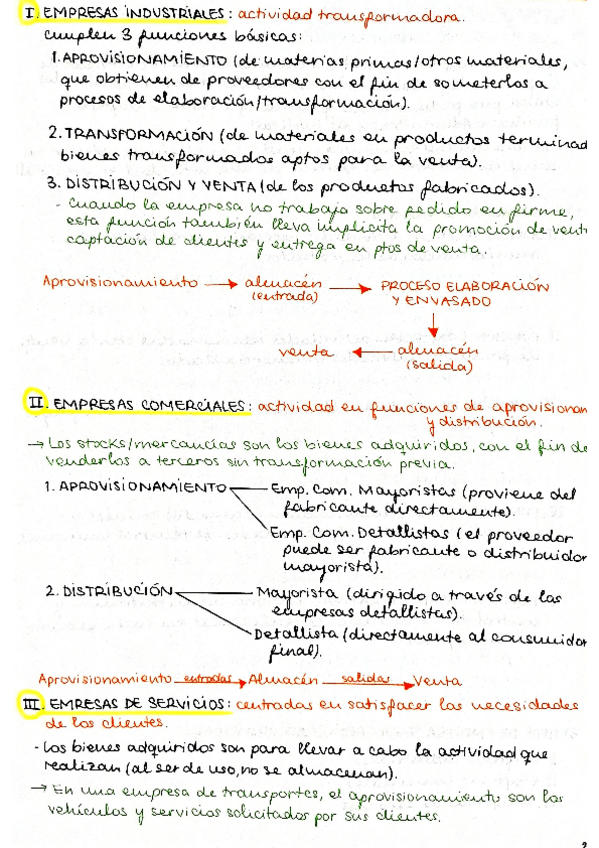 I. EMPRESAS INDUSTRIALES: actividad transformadora.
cumplen 3 funciones básicas:
1. APROVISIONAMIENTO (de materias primas/otros materiales,
que obtienen de proveedores con el fin de someterlos a
procesos de elaboración/transformación).
2. TRANSFORMACIÓN (de materiales en productos terminad
bienes transformados aptos para la venta).
3. DISTRIBUCIÓN Y VENTA (de los productos fabricados).
- Cuando la empresa no trabaja sobre pedido en firme,
esta función también lleva implícita la promoción de vent
captación de clientes y entrega en ptos de venta.
Aprovisionamiento → almacén → PROCESO ELABORACIÓN
(entrada) Y ENVASADO
↓
venta ← almacén
(salida)
II. EMPRESAS COMERCIALES: actividad en funciones de aprovisionam
y distribución.
→ Los stocks/mercancías son los bienes adquiridos, con el fin de
venderlos a terceros sin transformación previa.
1. APROVISIONAMIENTO Emp. Com. Mayoristas (proviene del
fabricante directamente).
Emp. Com. Detallistas (el proveedor
puede ser fabricante o distribuidor
mayorista).
2. DISTRIBUCIÓN Mayorista (dirigido a través de las
empresas detallistas).
Detallista (directamente al consumidor
final).
Aprovisionamiento entradas → Almacén salidas → Venta
III. EMRESAS DE SERVICIOS: centradas en satisfacer las necesidades
de los clientes.
- Los bienes adquiridos son para llevar a cabo la actividad que
realizan (al ser de uso, no se almacenan).
→ En una empresa de transportes, el aprovisionamiento son los
vehículos y servicios solicitados por sus clientes.
2